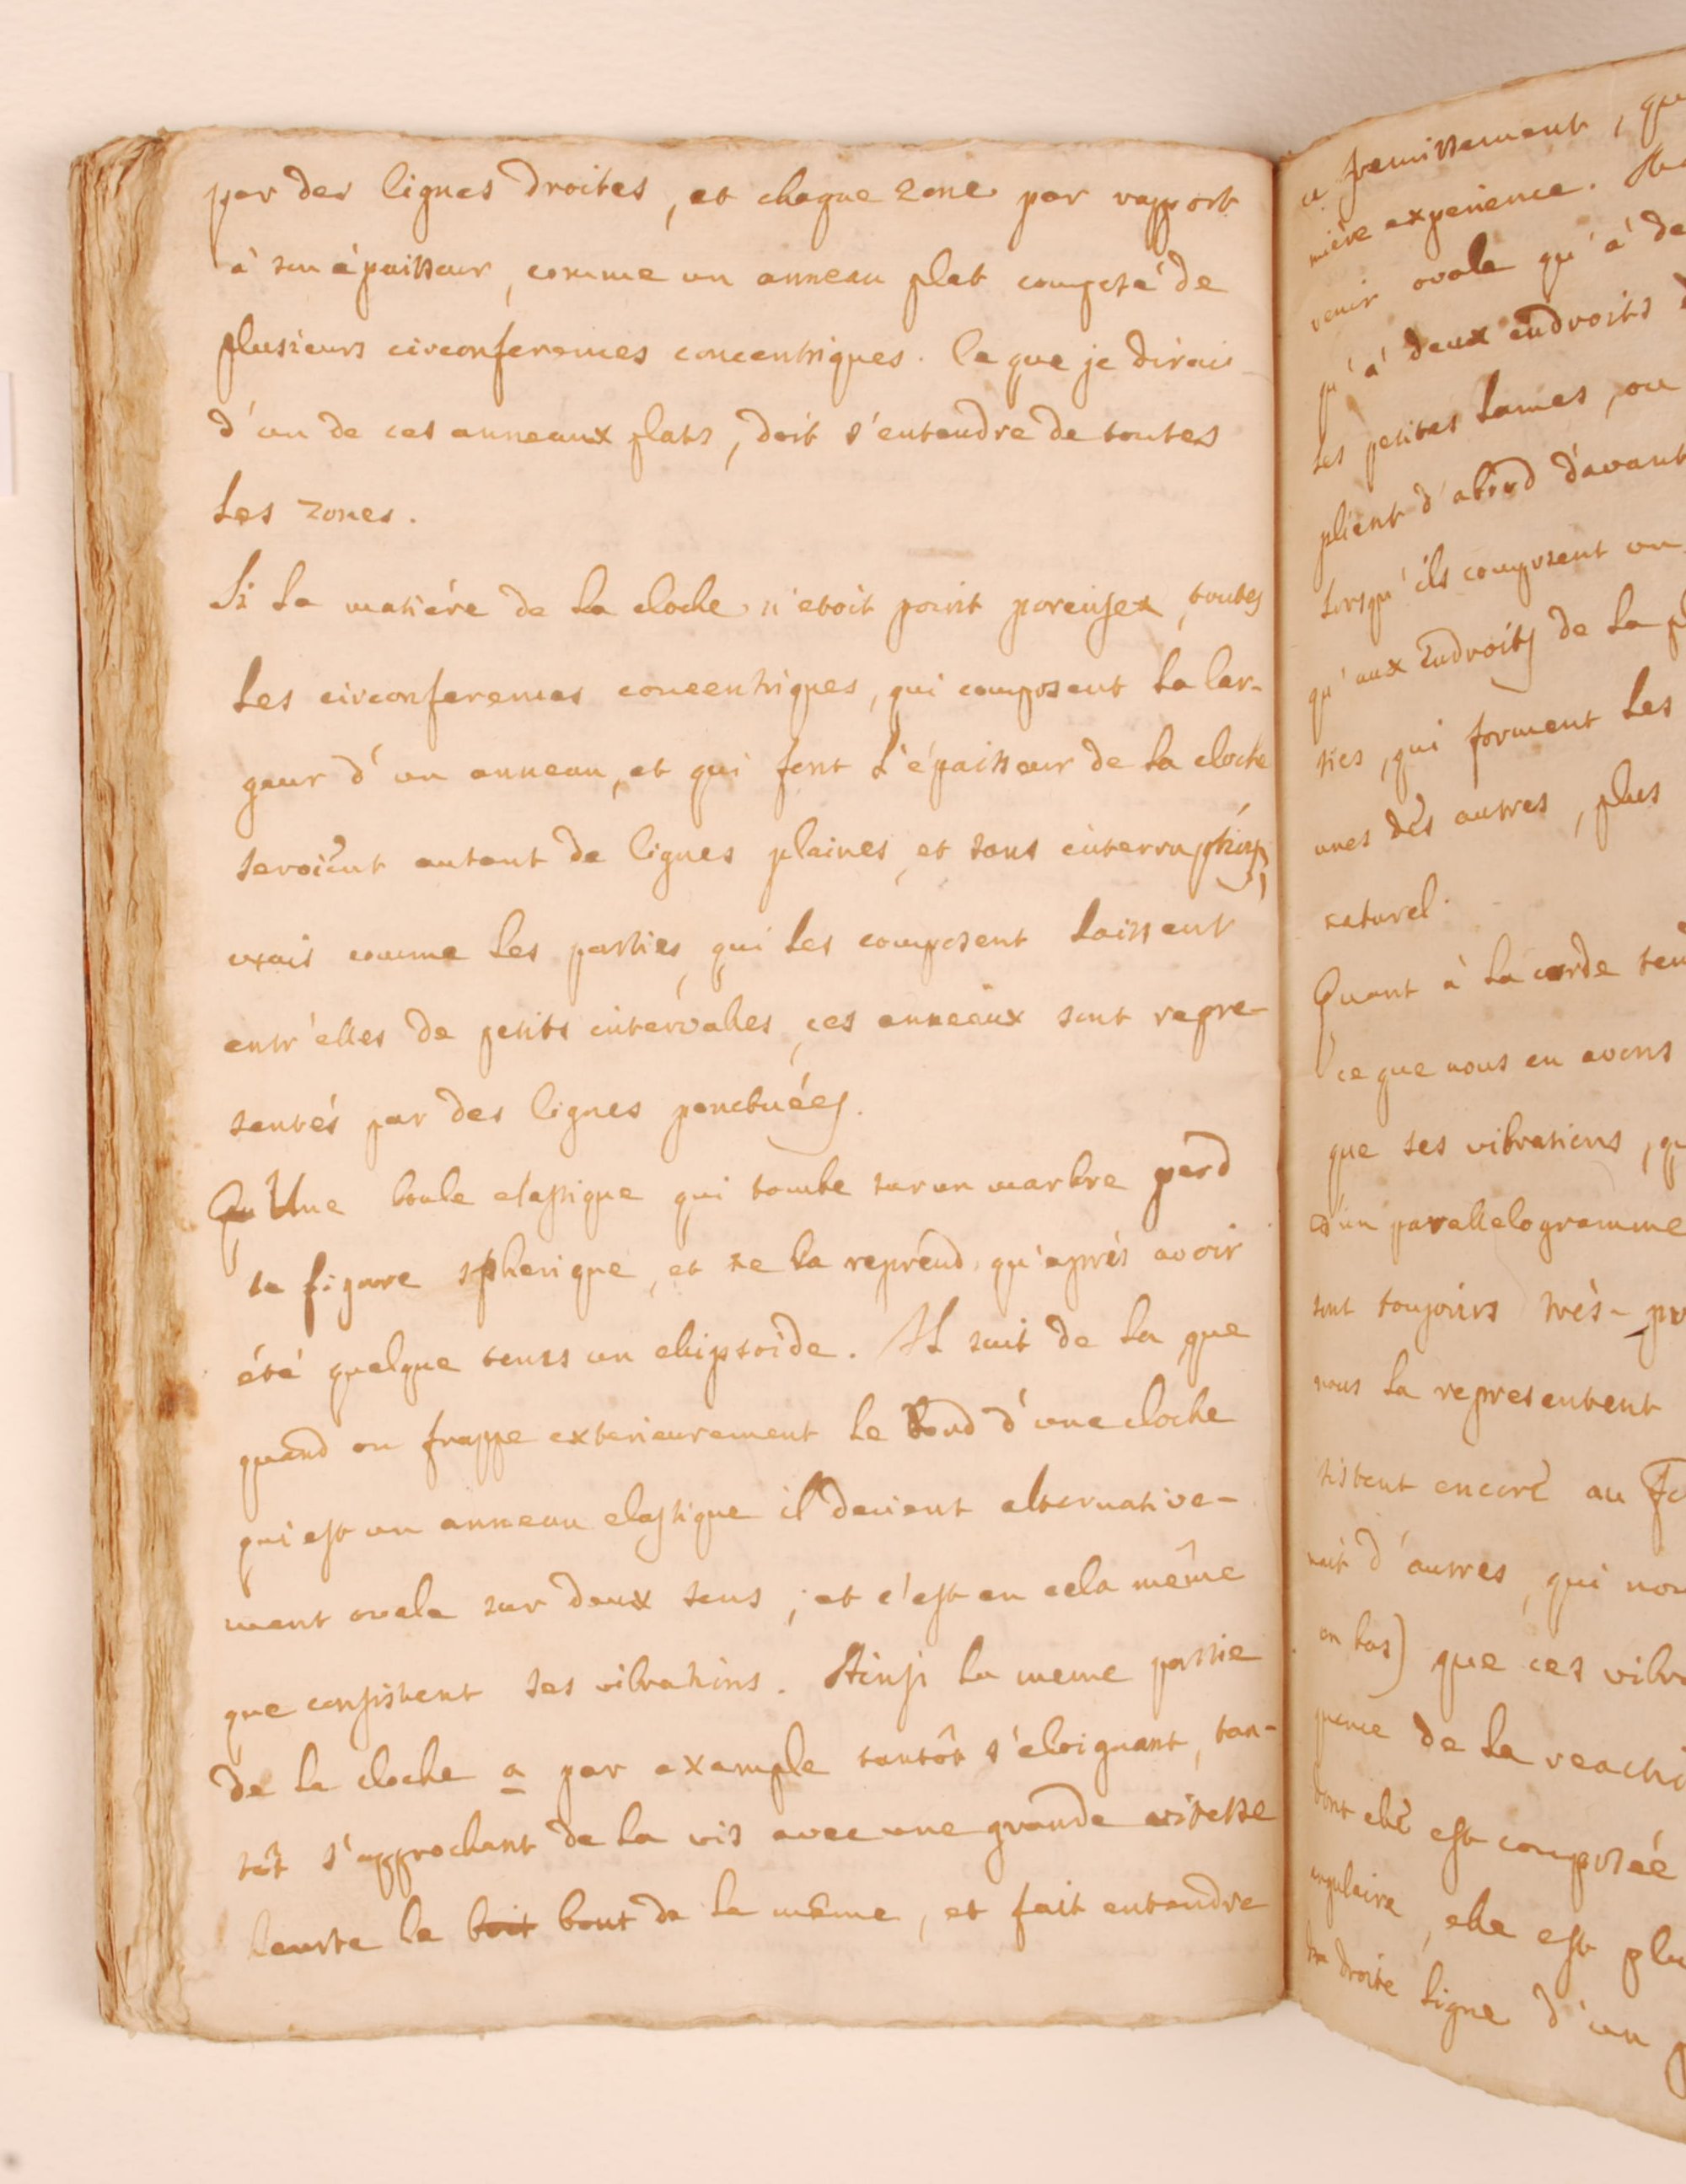 par des lignes droites, et chaque zone par rapport
à son épaisseur, comme un anneau plat composé de
plusieurs circonferences concentriques. Ce que je dirai
d'un de ces anneaux plats, doit s'entendre de toutes
Les zones.
Si La matiére de La cloche n'etoit point poreuse, toutes
Les circonferences concentriques, qui composent La lar-
geur d'un anneau, et qui font L'épaisseur de La cloche
seroient autant de lignes plaines, et sans interruption,
mais comme Les parties, qui Les composent Laissent
entr'elles de petits intervalles, ces anneaux sont repre-
sentés par des lignes ponctuées.
Une boule elastique qui tombe sur un marbre perd
sa figure spherique, et ne La reprend, qu'aprés avoir
été quelque tems un elipsoïde. Il suit de La que
quand on frappe exterieurement Le Bord d'une cloche
qui est un anneau elastique il devient alternative-
ment ovale sur deux sens; et c'est en cela même
que consistent ses vibrations. Ainsi La meme partie
de La cloche a par example tantôt s'eloignant, tan-
tôt s'approchant de La vis avec une grande vitesse
heurte Le boit bout de La même, et fait entendre
ce fremissement, qu
miére experience. 
venir ovale qu'à de
qu'à deux endroits
Les petites Lames, ou
plient d'abord davant
Lorsqu'ils composent un
qu'aux Endroits de La
ties, qui forment Les
unes des autres, plus
naturel.
Quant à La corde ten
ce que nous en avons
que ses vibrations, qu
d'un parallelogramme
sont toujours très-pr
nous La representent
sistent encore au
nait d'autres, qui nou
en bas) que ces vibra
quence de La reacti
dont elle est composée
angulaire, elle est plu
droite Ligne d'un